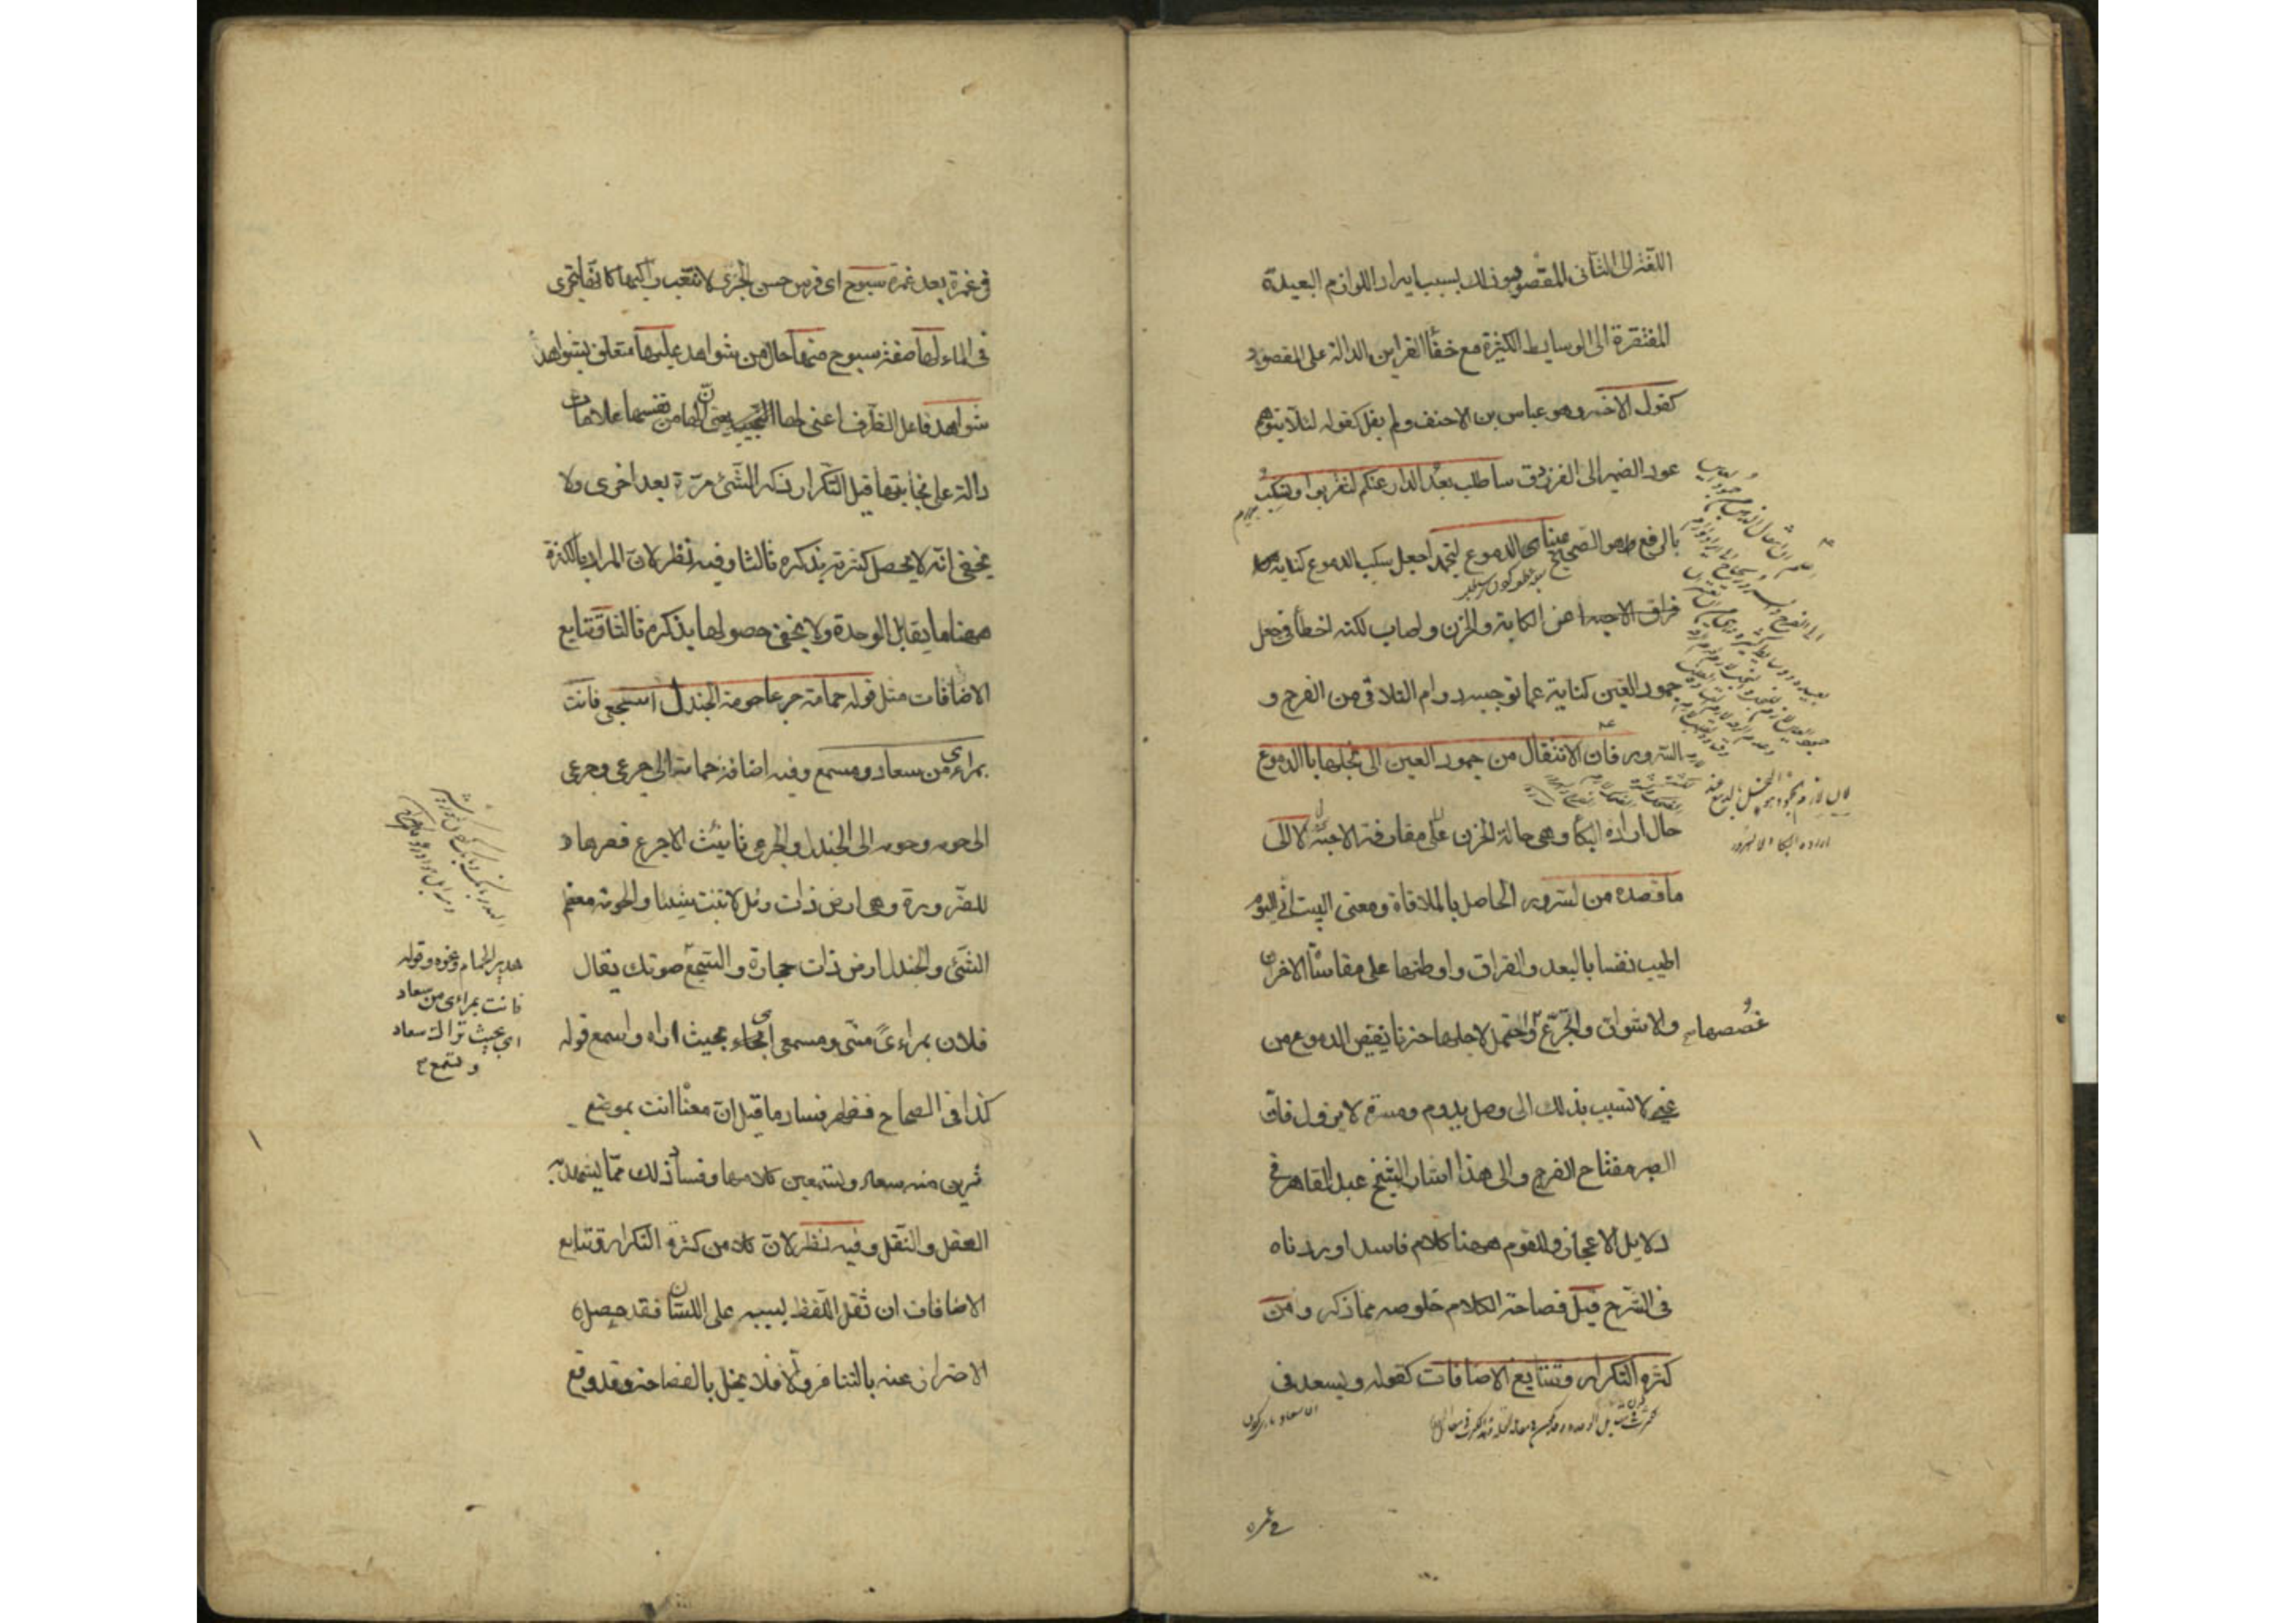 اللغة الى الثانى المقصود وذلك بسبب ايراد اللوازم البعيدة
المفتقرة الى الوسايط الكثيرة مع خفأ القراين الدالة على المقصود
كقول الاخر وهو عباس بن الاحنف ولم يقل كقوله لئلا يتوهم
عود الضمير الى الفرزدق ساطلب بعد الدار عنكم لتقربوا وتسكب
بالرفع وهو الصحيح عيناى الدموع لتجمدا جعل سكب الدموع كناية عما
فراق الاحبه من الكابة والحزن واصاب لكنه اخطأ فى جعل
جمود العين كناية عما توجبه دوام التلاقى من الفرح و
السرور فان الانتقال من جمود العين الى بخلها بالدموع
حال ارادة البكأ وهى حالة الحزن على مفارقة الاحبة لا الى
ما قصده من السرور الحاصل بالملاقاة ومعنى البيت انى اليوم
اطيب نفسا بالبعد والفراق واوطنها على مقاساة الاحزان
والاشواق واتجرع غصصها واحتمل لاجلها حزنا يفيض الدموع من
عينى لاتسبب بذلك الى وصل يدوم ومسرة لا يزول فان
الصبر مفتاح الفرج والى هذا اشار الشيخ عبد القاهر فى
دلايل الاعجاز وللقوم ههنا كلام فاسد اوردناه
فى الشرح قيل فصاحة الكلام خلوصه مما ذكر ومن
كثرة التكرار وتتابع الاضافات كقوله وتسعدنى
فى غمرة
فى غمرة بعد غمرة سبوح اى فرس حسن الجرى لا تتعب راكبها كانها تجرى
فى الماء لها صفة سبوح منها حال من شواهد عليها متعلق بشواهد
شواهد فاعل الظرف اعنى لها يعنى ان لها من نفسها علامات
دالة على نجابتها قيل التكرار ذكر الشئ مرة بعد اخرى ولا
يخفى انه لا يحصل كثرته بذكره ثالثا وفيه نظر لان المراد بالكثرة
ههنا ما يقابل الوحدة ولا يخفى حصولها بذكره ثالثا وتتابع
الاضافات مثل قوله حمامة جرعا حومة الجندل اسجعى فانت
بمراءى من سعاد ومسمع وفيه اضافة حمامة الى جرعى وجرعى
الى حومه وحومه الى الجندل والجرعى تانيث الاجرع قصرها
للضرورة وهى ارض ذات رمل لا تنبت شيئا والحومة معظم
الشئ والجندل ارض ذات حجارة والسجع صوتك يقال
فلان بمراءى منى ومسمع اى بحيث اراه واسمع قوله
كذا فى الصحاح فظهر فساد ما قيل ان معناه انت بموضع
ترين منه سعاد وتسمعين كلامها وفساد ذلك مما يشهد به
العقل والنقل وفيه نظر لان كلا من كثرة التكرار وتتابع
الاضافات ان ثقل اللفظ بسببه على اللسان فقد حصل
الاحتراز عنه بالتنافر والا فلا يخل بالفصاحة وقد وقع
هدير الحمام ونحوه وقوله
فانت بمراءى من سعاد
اى بحيث تراك سعاد
وتسمع